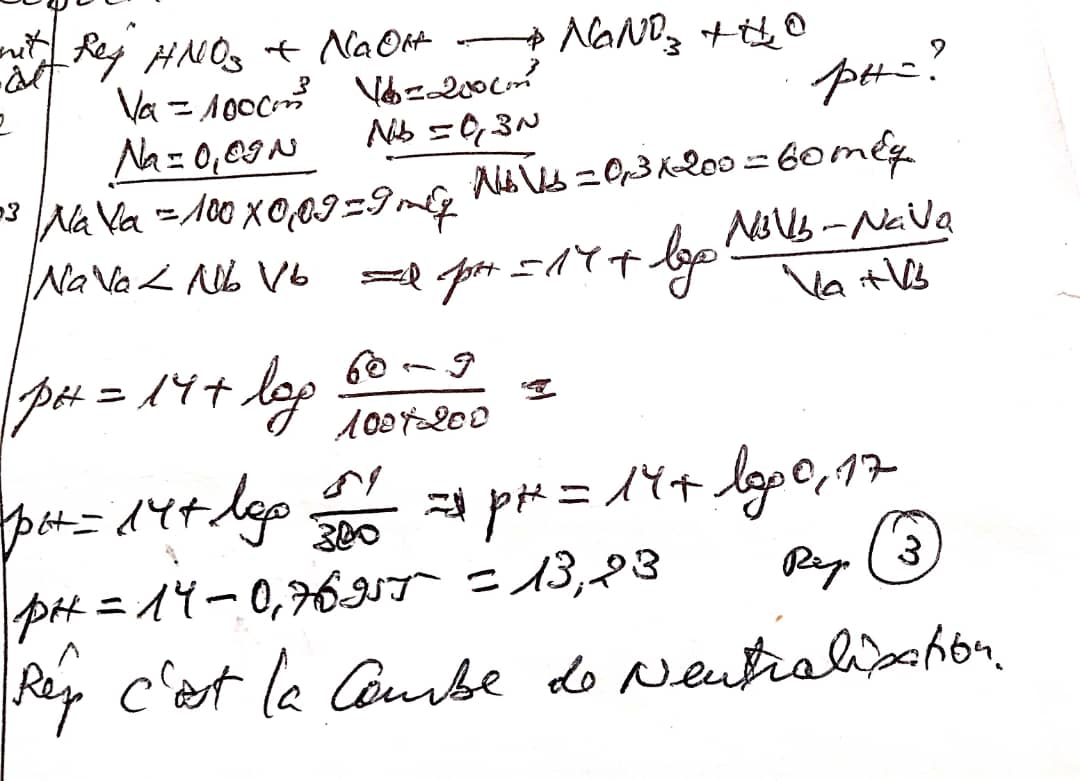 Rép HNO₃ + NaOH → NaNO₃ + H₂O
Va = 100cm³ Vb = 200cm³ pH = ?
Na = 0,09N Nb = 0,3N
NaVa = 100 x 0,09 = 9 méq NbVb = 0,3 x 200 = 60 méq
NaVa < NbVb ⇒ pH = 14 + log (NbVb - NaVa)/(Va + Vb)
pH = 14 + log (60 - 9)/(100 + 200) =
pH = 14 + log 51/300 ⇒ pH = 14 + log 0,17
pH = 14 - 0,76955 = 13,23 Rép (3)
Rép C'est la Courbe de Neutralisation.